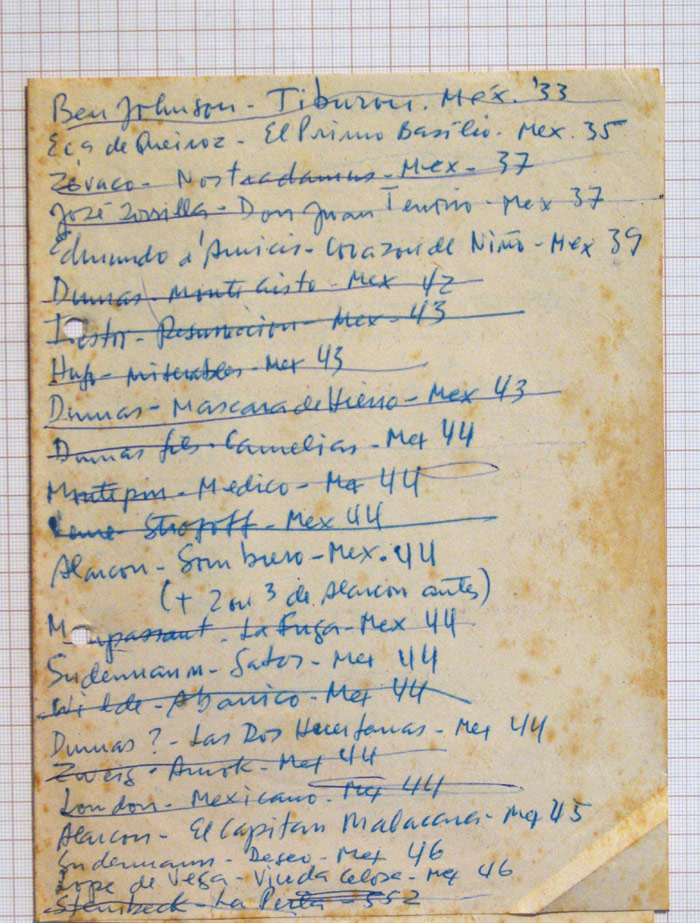 Ben Johnson - Tiburon. Mex. '33
Eça de Queiroz - El Primo Basilio. Mex. 35
Zévaco - Nostradamus - Mex - 37
José Zorrilla - Don Juan Tenorio - Mex 37
Edmundo d'Amicis - Corazon de Niño - Mex 39
Dumas - Monte Cristo - Mex 42
- Resurreccion - Mex - 43
Hugo - Miserables - Mex 43
Dumas - Mascara de Hierro - Mex 43
Dumas fils - Camelias - Mex 44
Montepin - Medico - Mex 44
Verne - Strogoff - Mex 44
Alarcon - Sombrero - Mex. 44
(+ 2 ou 3 de Alarcon antes)
Maupassant - La Fuga - Mex 44
Sudermann - Gatos - Mex 44
Wilde - Abanico - Mex 44
Dumas ? - Las Dos Huerfanas - Mex 44
Zweig - Amok - Mex 44
London - Mexicano - Mex 44
Alarcon - El Capitan Malacara - Mex 45
Sudermann - Deseo - Mex 46
Lope de Vega - Viuda Celosa - Mex 46
Steinbeck - La Perla -